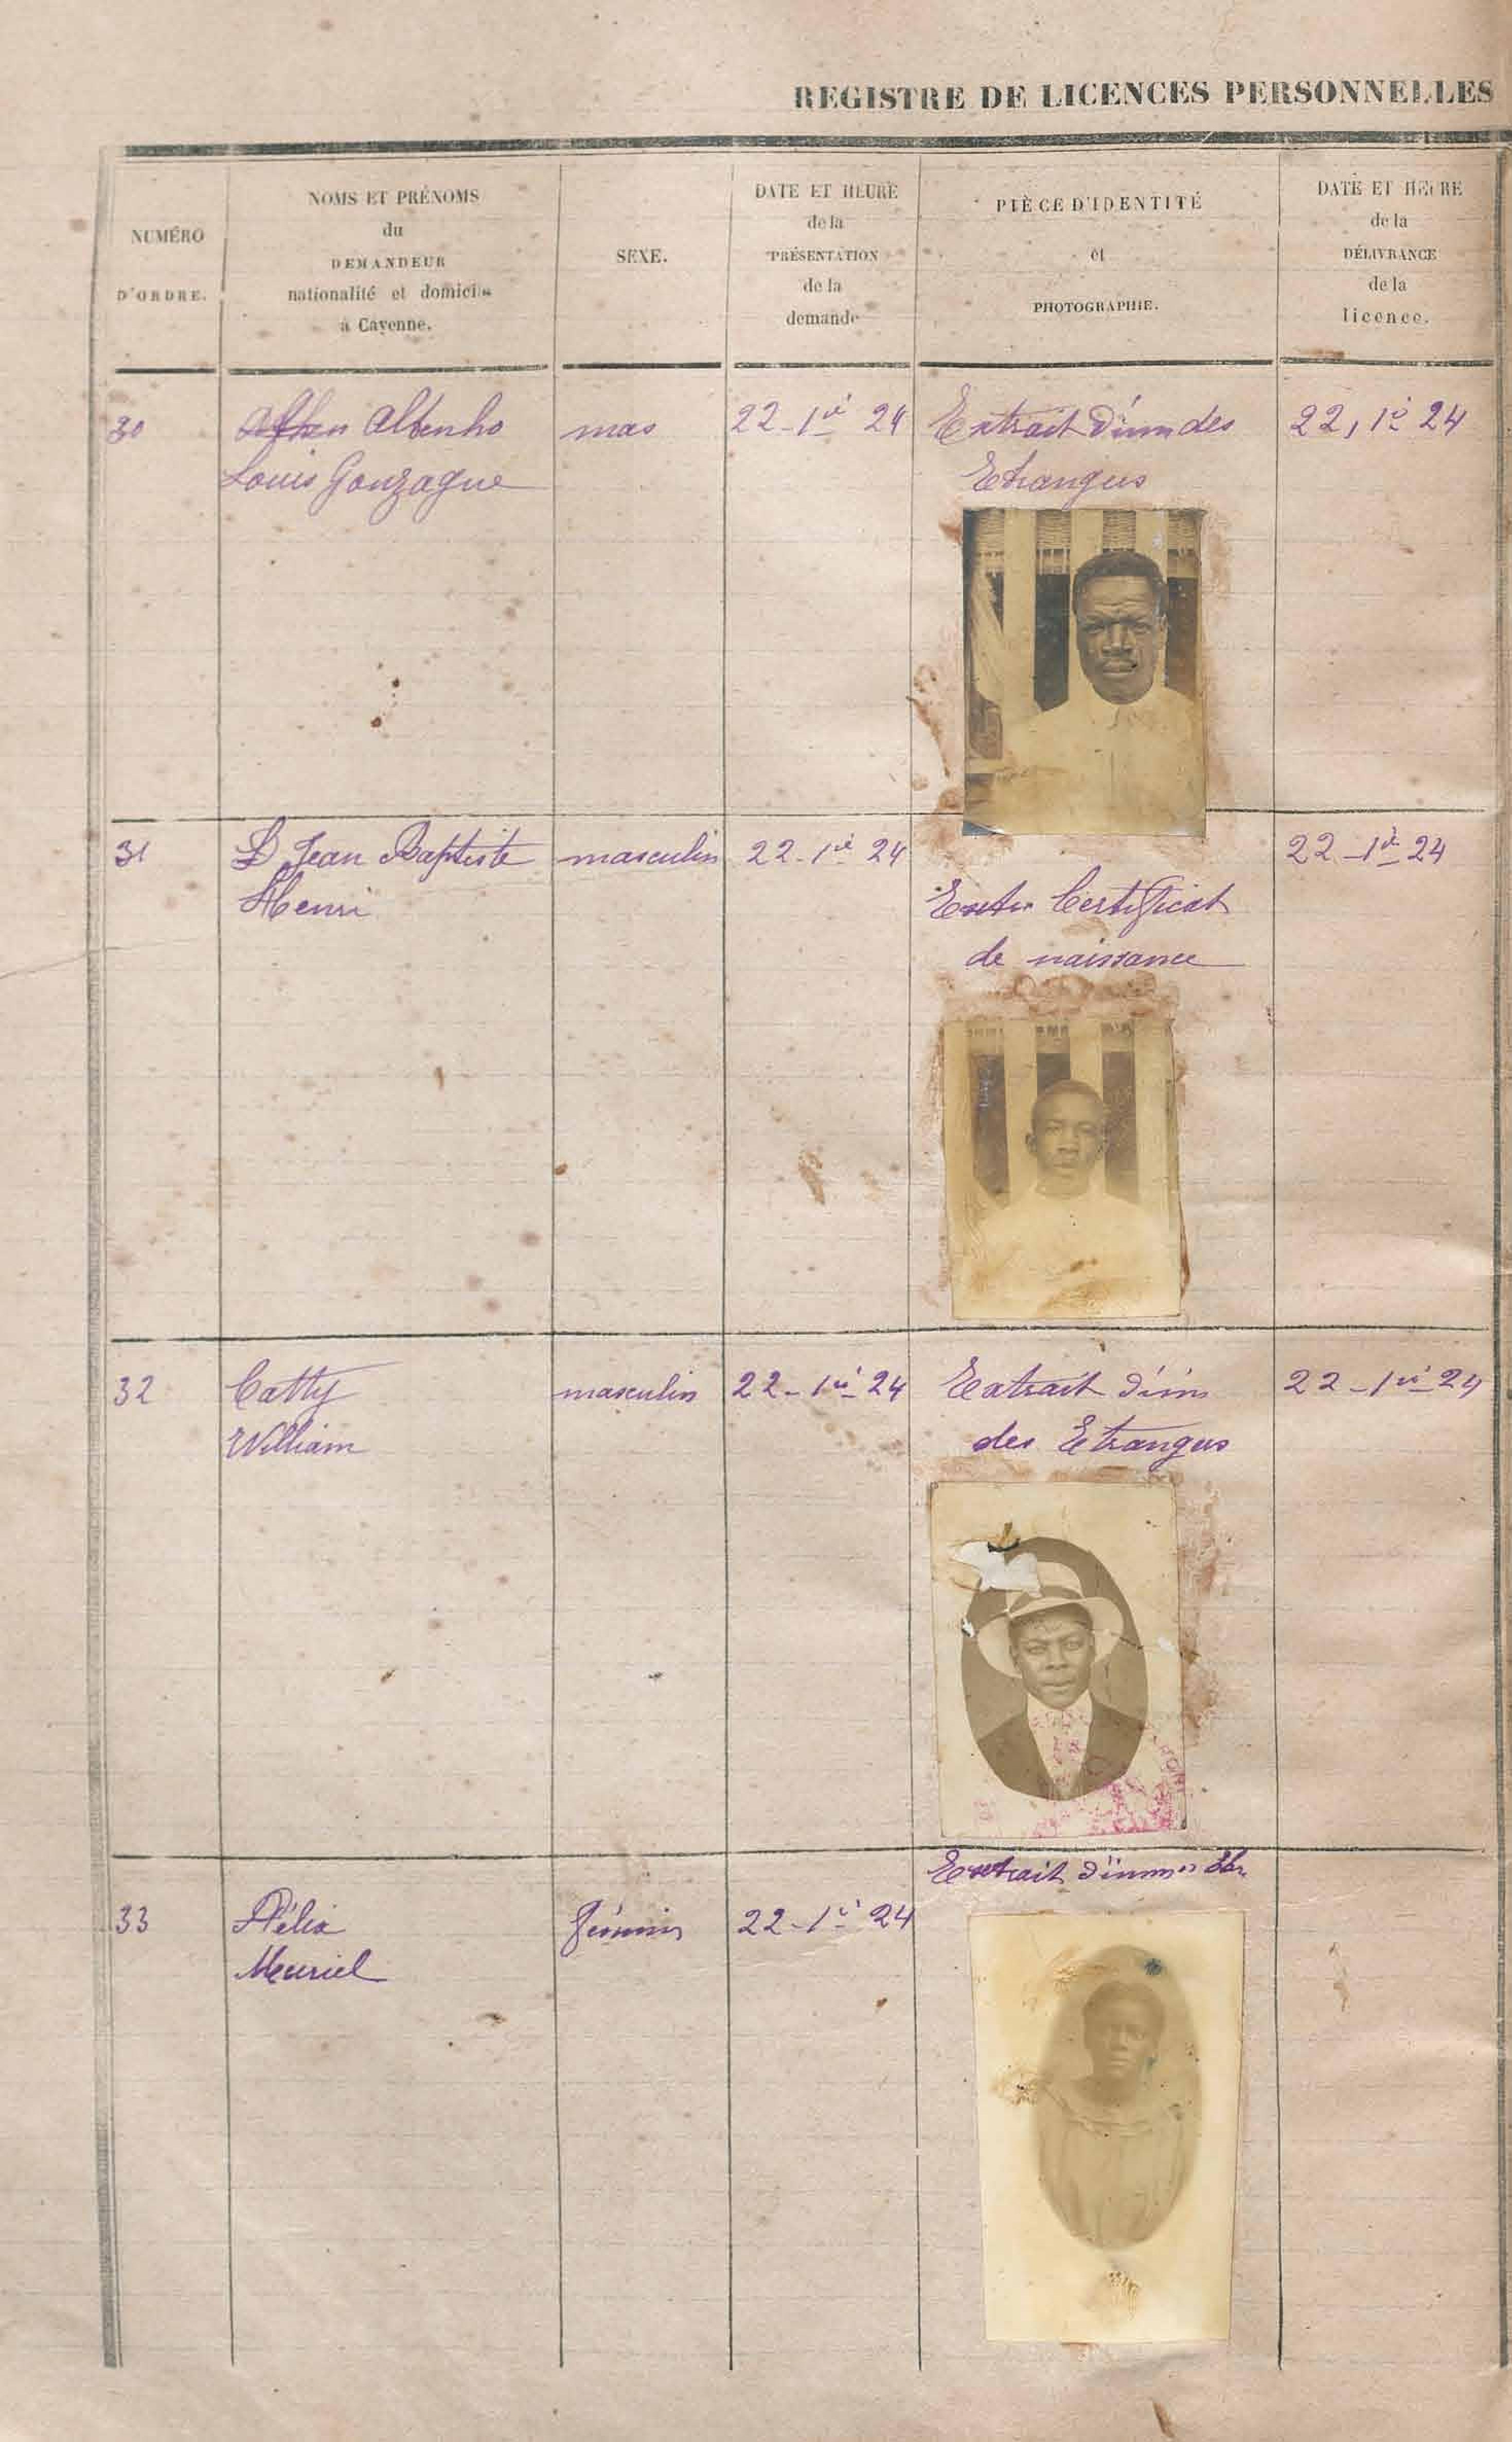 REGISTRE DE LICENCES PERSONNELLES
NUMÉRO
D'ORDRE.
NOMS ET PRÉNOMS
du
DEMANDEUR
nationalité et domicile
à Cayenne.
SEXE.
DATE ET HEURE
de la
PRÉSENTATION
de la
demande
PIÈCE D'IDENTITÉ
et
PHOTOGRAPHIE.
DATE ET HEURE
de la
DÉLIVRANCE
de la
licence.
30
Albenho
Louis Gonzague
mas
22-1er 24
Extrait d'imm des
Etrangers
22, 1er 24
31
Jean Baptiste
Henri
masculin
22-1er 24
Certificat
de naissance
22-1er 24
32
Catty
William
masculin
22-1er 24
Extrait d'im
des Etrangers
22-1er 24
33
Délia
Meuriel
féminin
22-1er 24
Extrait